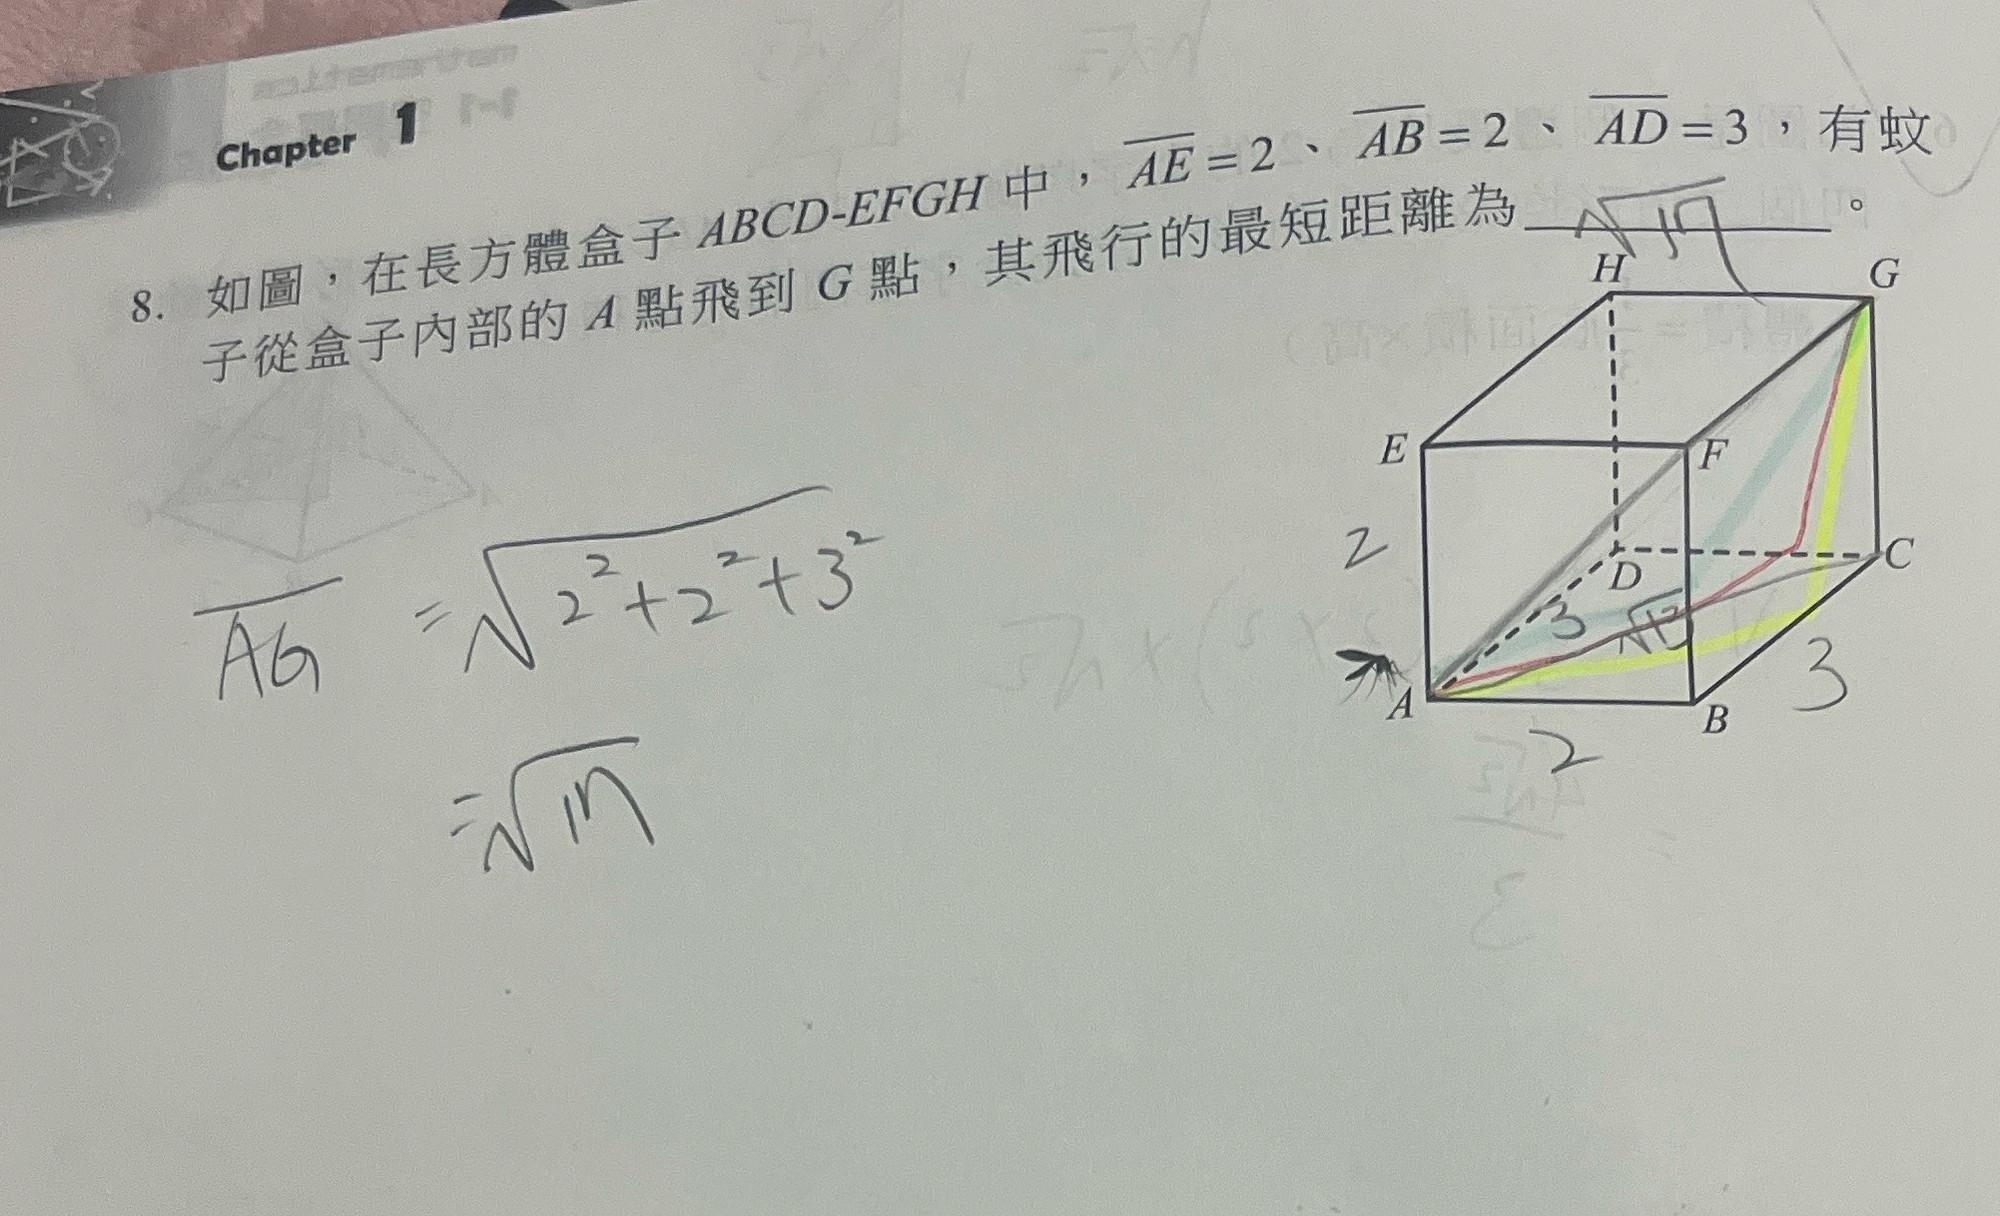 Chapter 1
8. 如圖，在長方體盒子 ABCD-EFGH 中，\overline{AE} = 2、\overline{AB} = 2、\overline{AD} = 3，有蚊
子從盒子內部的 A 點飛到 G 點，其飛行的最短距離為 √17 。
H
G
E
F
2
D
C
3
√13
A
B
3
2
\overline{AG} = √(2²+2²+3²)
= √17